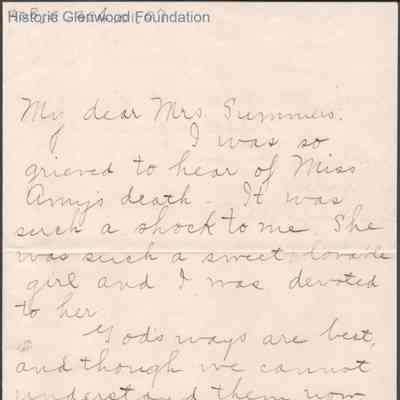 Historic Glenwood Foundation
My dear Mrs. Summers.
I was so
grieved to hear of Miss
Amy's death - It was
such a shock to me. She
was such a sweet, lovable
girl and I was devoted
to her
God's ways are best,
and though we cannot
understand them now